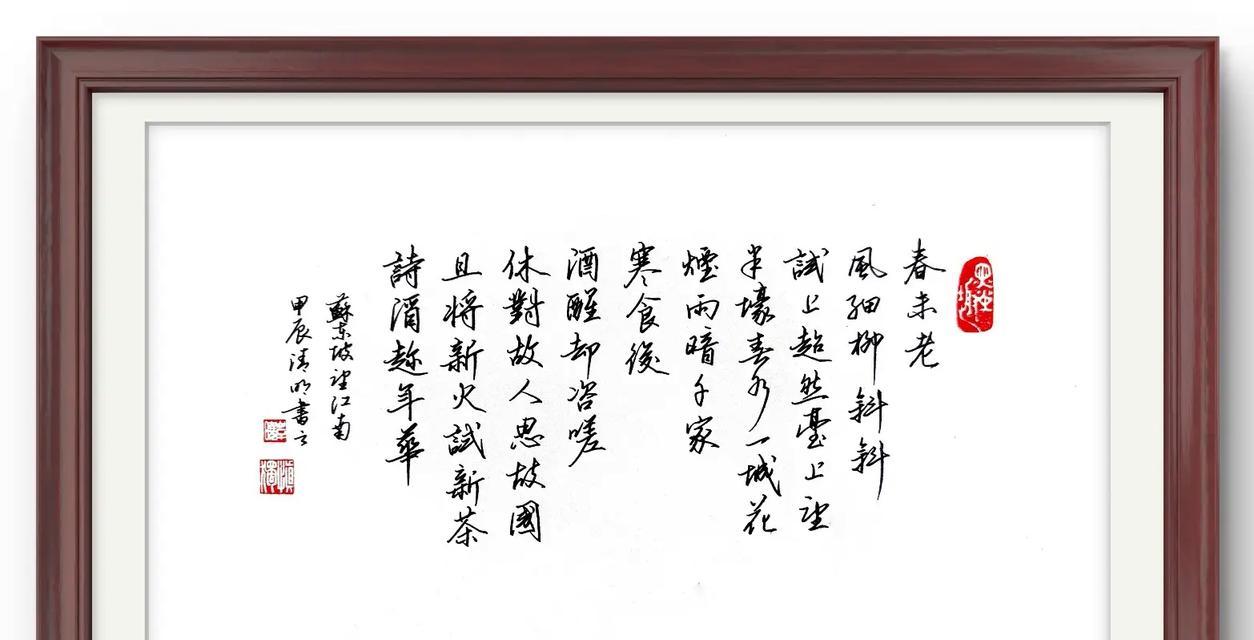 春未老
風細柳斜斜
試上超然臺上望
半壕春水一城花
煙雨暗千家
寒食後
酒醒却咨嗟
休對故人思故國
且將新火試新茶
詩酒趂年華
蘇東坡望江南
甲辰清明書之